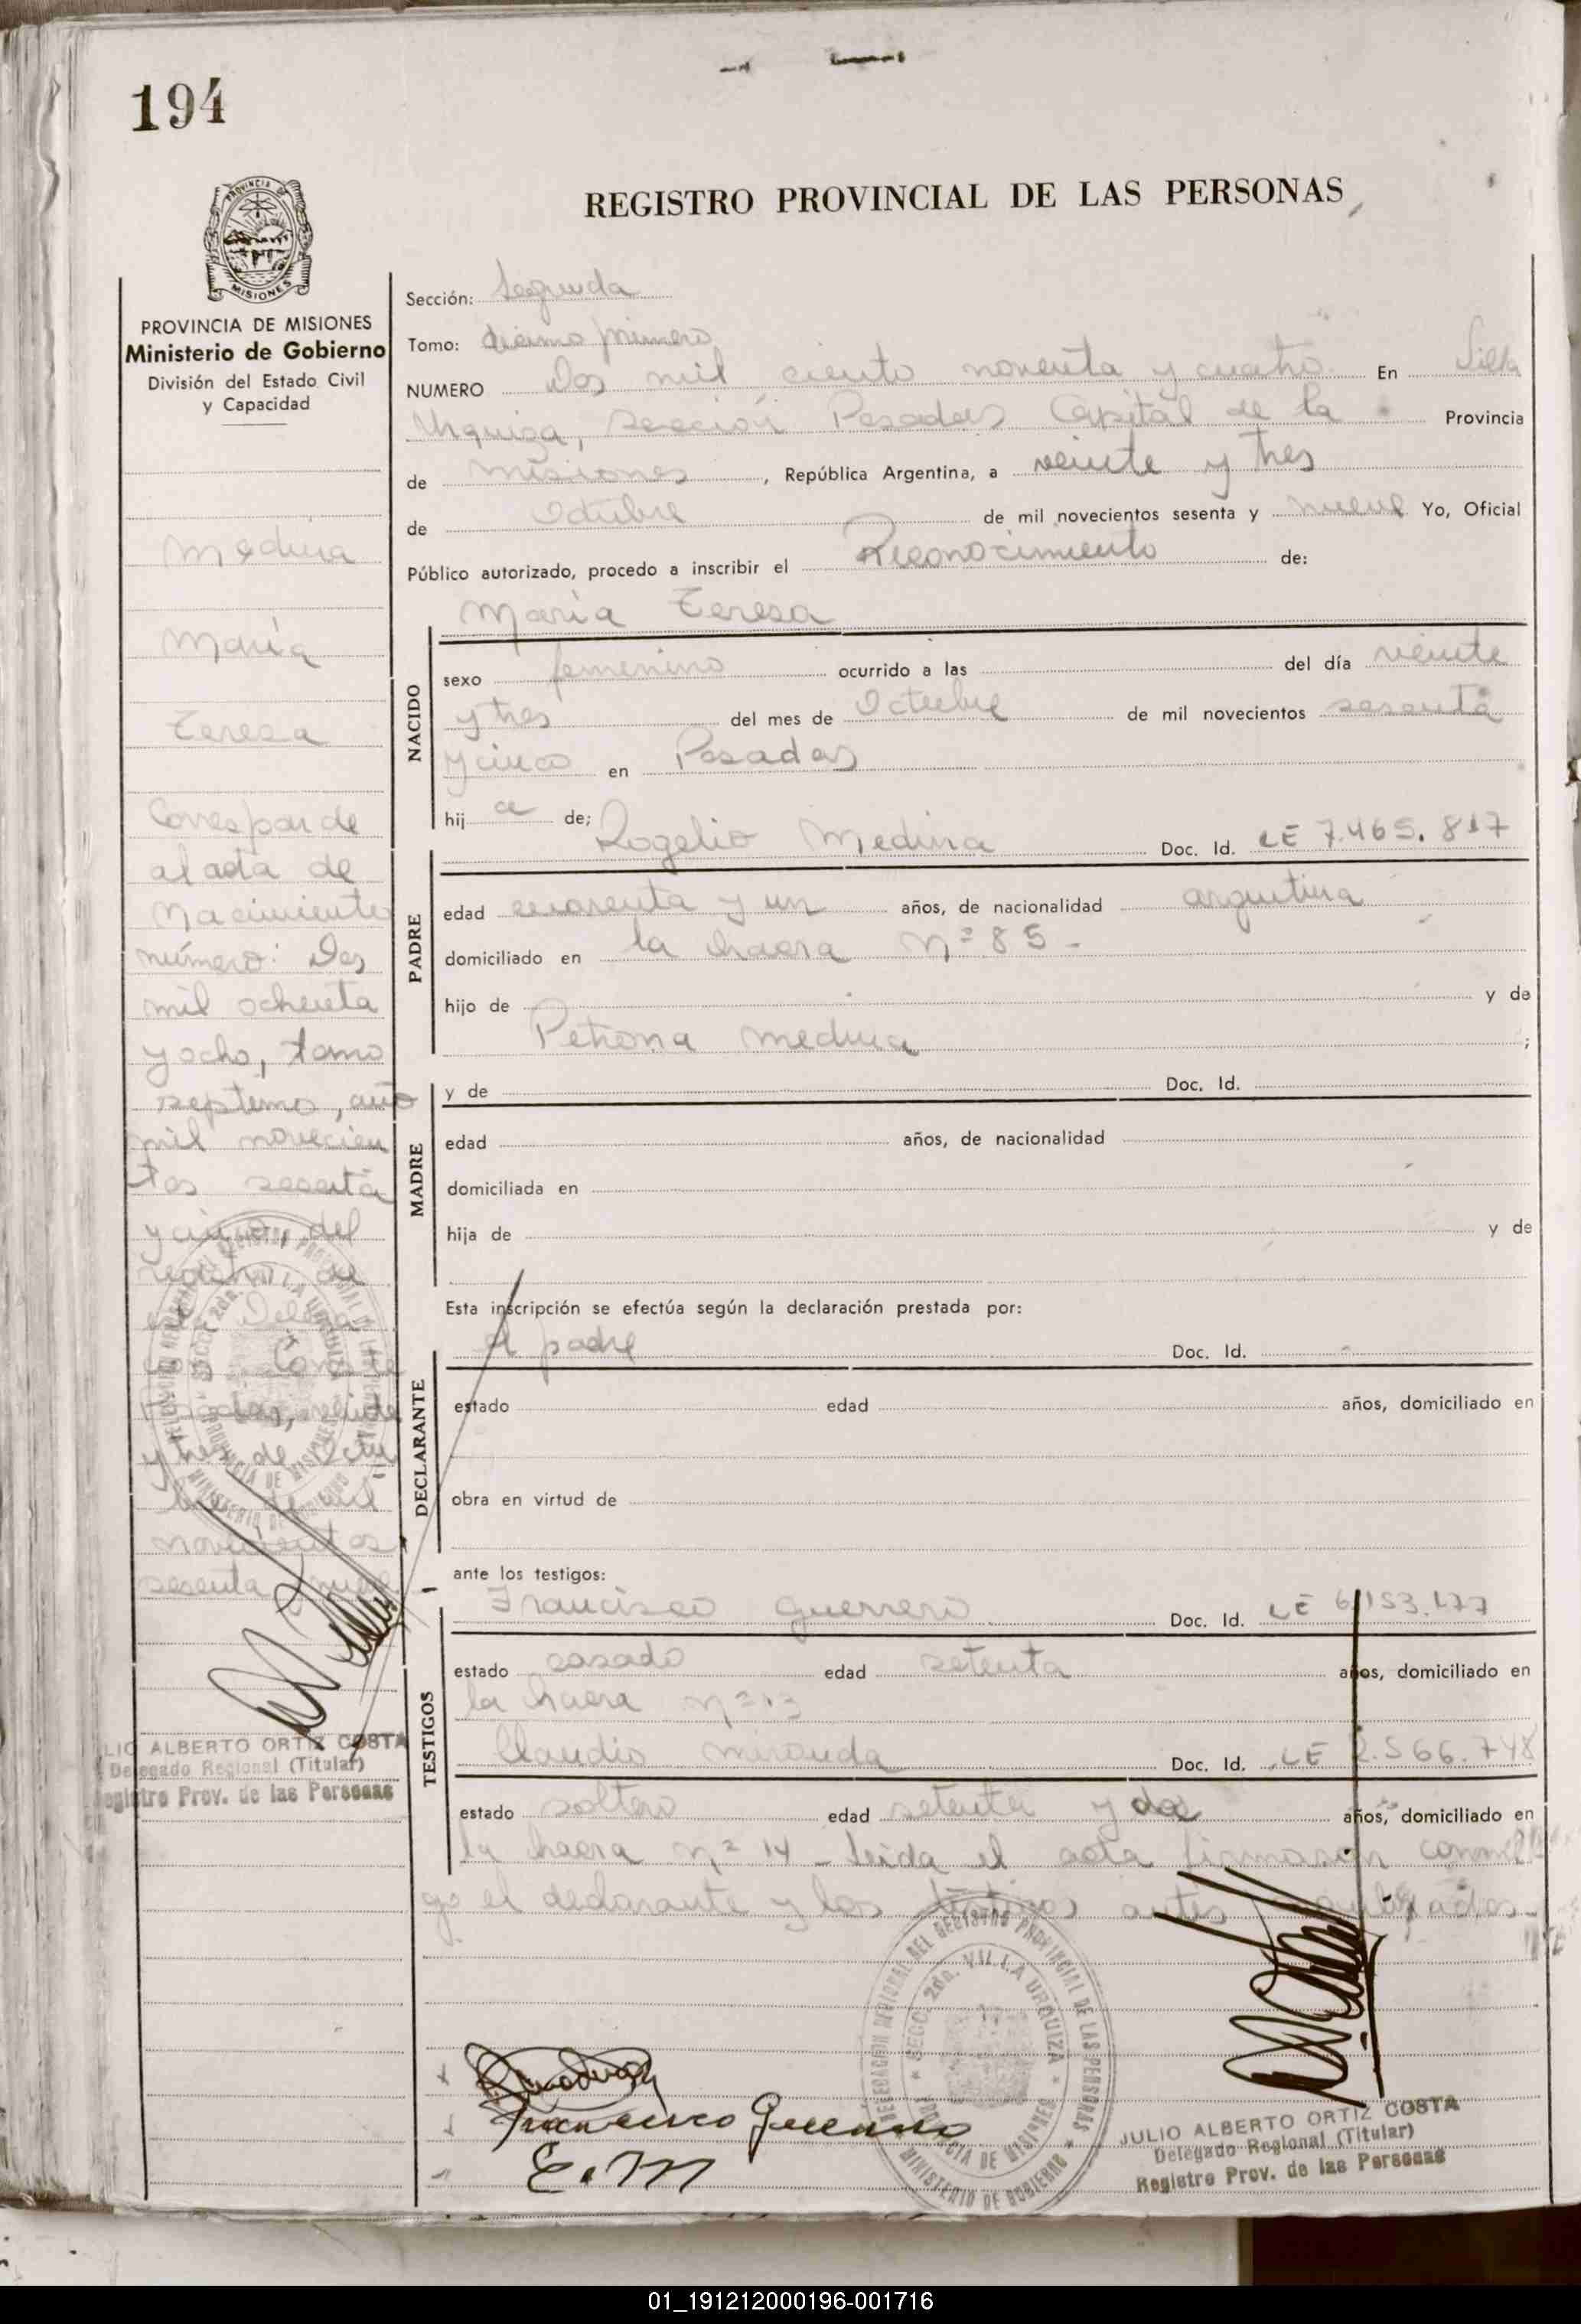 194
PROVINCIA DE MISIONES
PROVINCIA DE MISIONES
Ministerio de Gobierno
División del Estado Civil
y Capacidad
Medina
María
Teresa
Corresponde
al acta de
Nacimiento
número: Dos
mil ochenta
y ocho, tomo
septimo, año
mil novecien
tos sesenta
y cinco, del
de
Conste
Posadas, veinte
y tres de Octu
bre de mil
novecientos
sesenta y nueve
LIO ALBERTO ORTIZ COSTA
Delegado Regional (Titular)
egistro Prov. de las Personas
REGISTRO PROVINCIAL DE LAS PERSONAS
Sección: Segunda
Tomo: décimo primero
NUMERO Dos mil ciento noventa y cuatro. En Villa
Urquiza, sección Posadas Capital de la Provincia
de misiones, República Argentina, a veinte y tres
de Octubre de mil novecientos sesenta y nueve Yo, Oficial
Público autorizado, procedo a inscribir el Reconocimiento de:
María Teresa
NACIDO
sexo femenino ocurrido a las del día veinte
y tres del mes de Octubre de mil novecientos sesenta
y cinco en Posadas
hij a de;
Rogelio Medina Doc. Id. LE 7.465.817
PADRE
edad cuarenta y un años, de nacionalidad argentina
domiciliado en la chacra nº 85 -
hijo de y de
Petrona medina ;
MADRE
y de Doc. Id.
edad años, de nacionalidad
domiciliada en
hija de y de
Esta inscripción se efectúa según la declaración prestada por:
DECLARANTE
el padre Doc. Id.
estado edad años, domiciliado en
obra en virtud de
ante los testigos:
TESTIGOS
Francisco Guerrero Doc. Id. LE 6.153.177
estado casado edad setenta años, domiciliado en
la chacra nº 13
Claudio miranda Doc. Id. LE 2.566.748
estado soltero edad setenta y dos años, domiciliado en
la chacra nº 14 - Leída el acta firmaron conmi
go el declarante y los testigos antes
DELEGACION REGIONAL DEL REGISTRO PROVINCIAL DE LAS PERSONAS
SECC. 2da. VILLA URQUIZA
PROVINCIA DE MISIONES
MINISTERIO DE GOBIERNO
Francisco Guerrero
C.M
JULIO ALBERTO ORTIZ COSTA
Delegado Regional (Titular)
Registro Prov. de las Personas
01_191212000196-001716